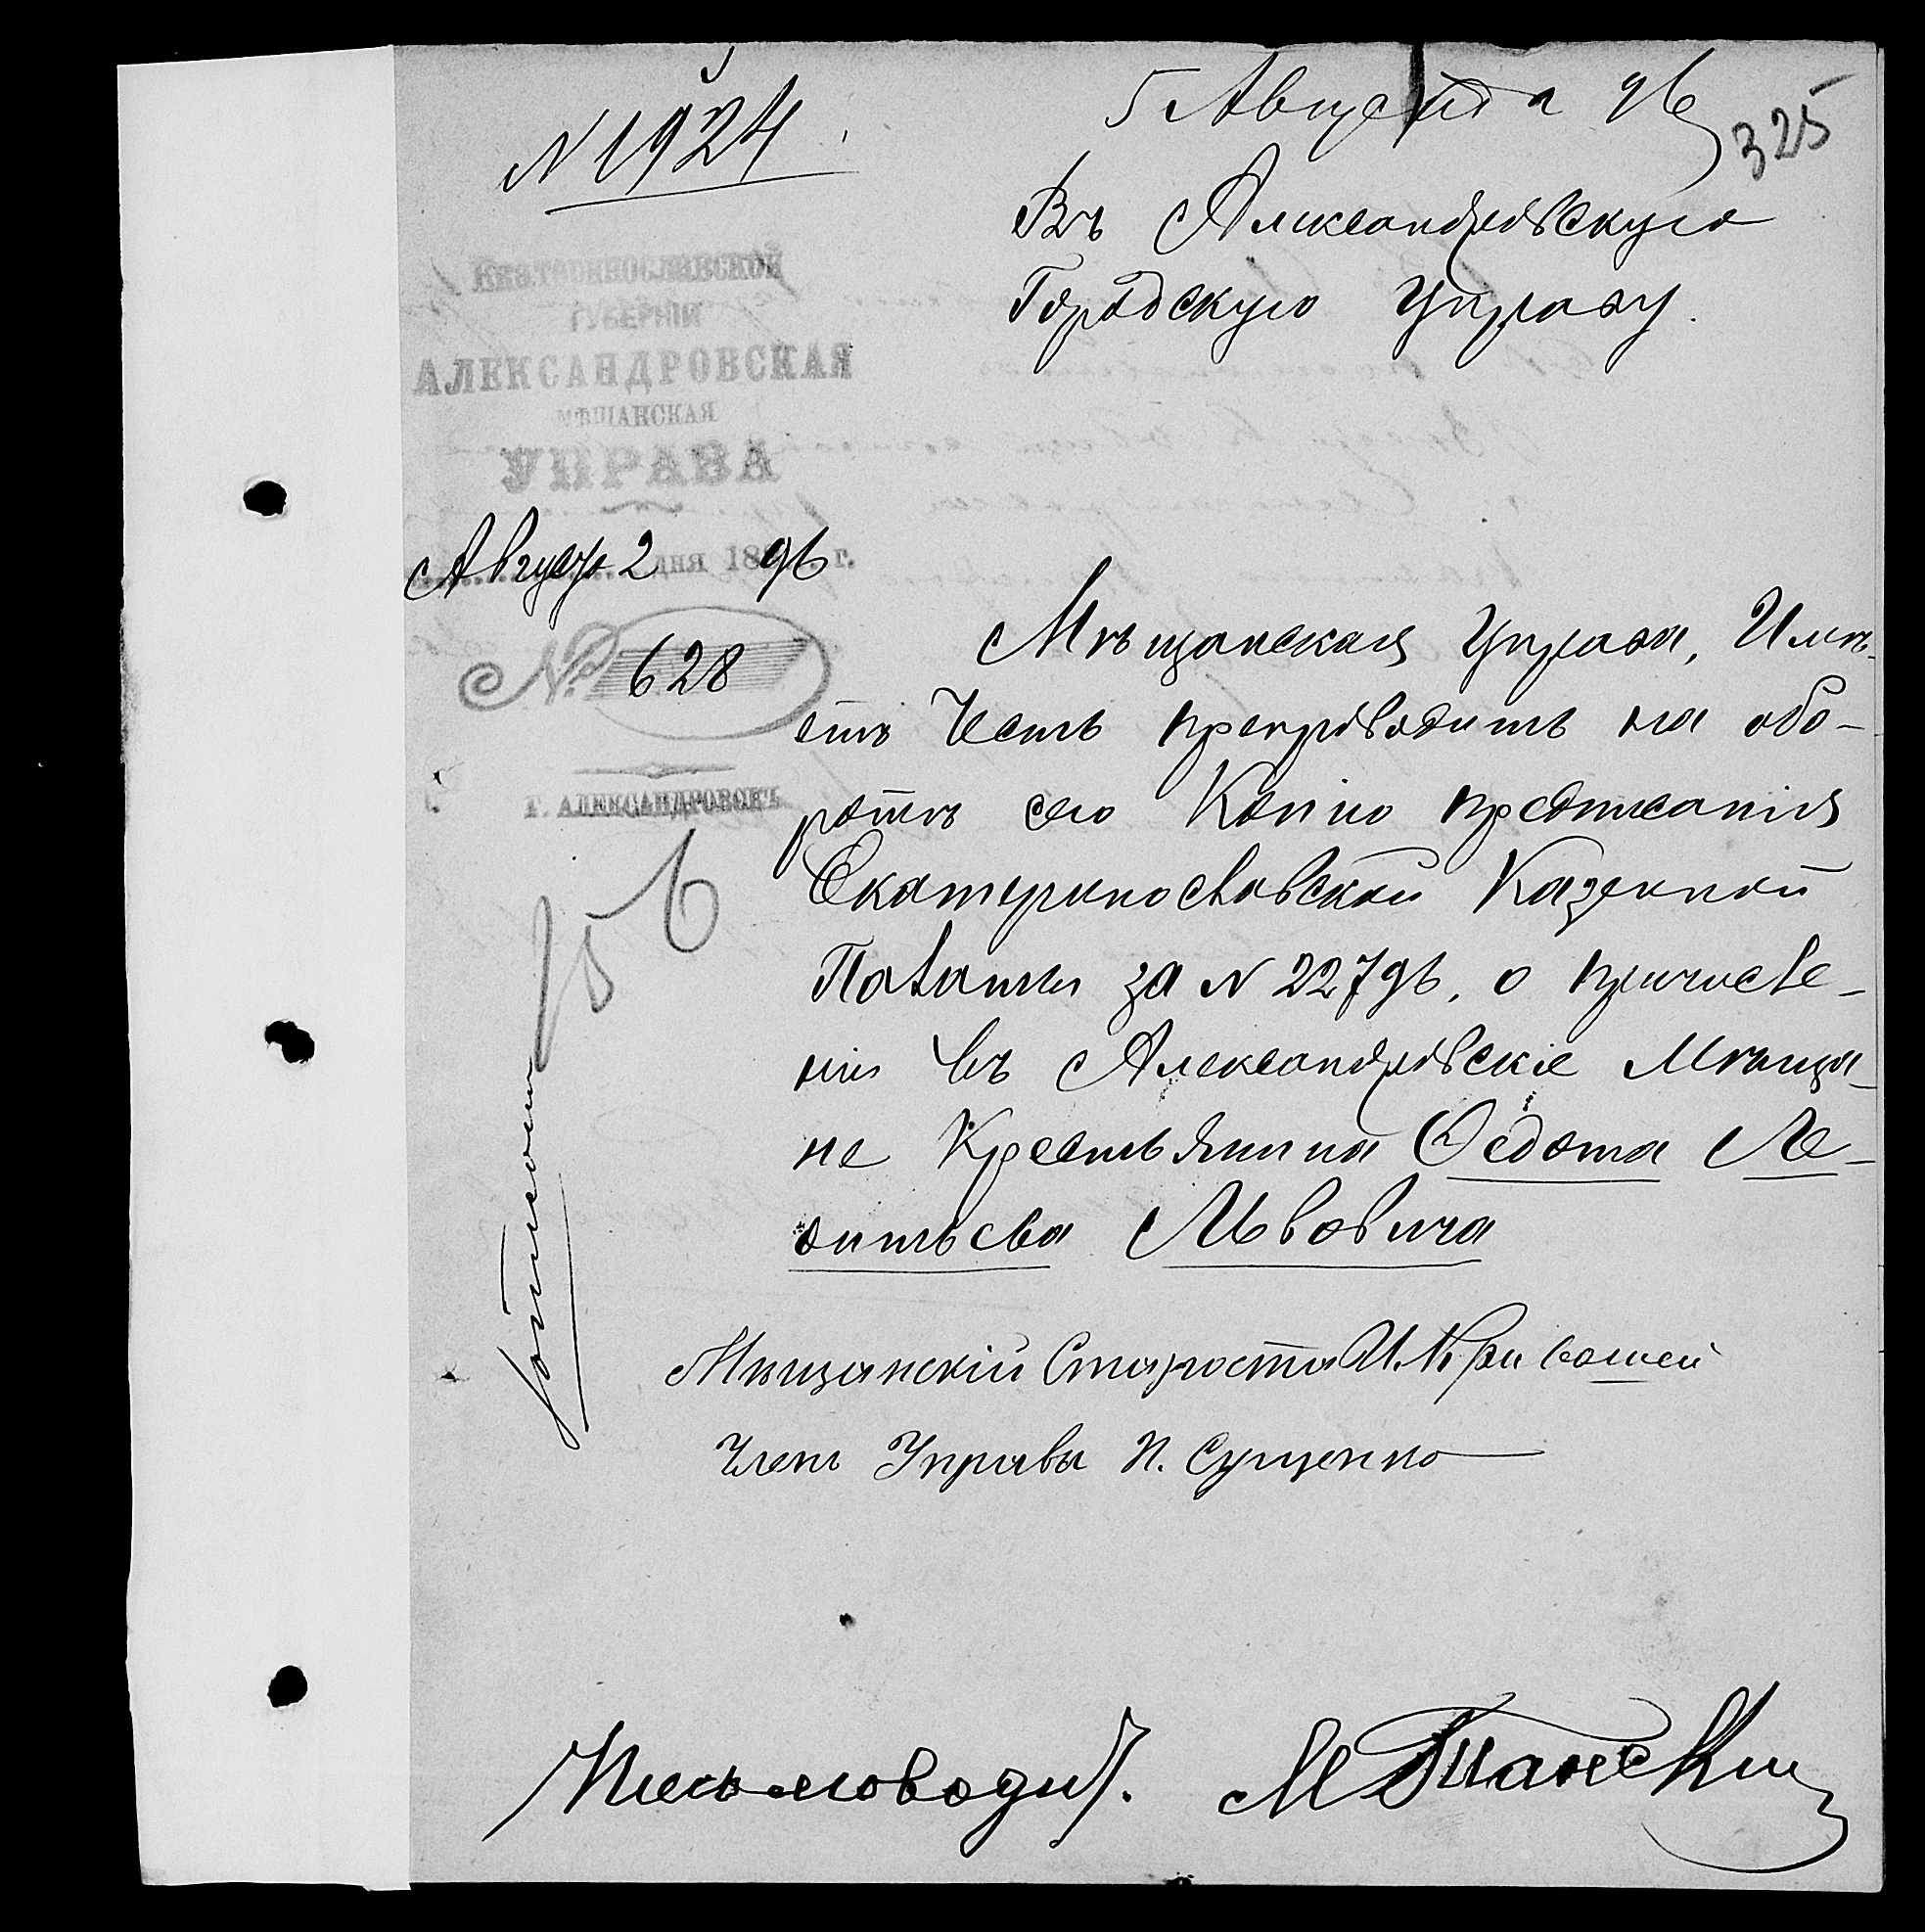 N 1924.
5 Августа 96
325
Въ Александровскую
Городскую Управу.
Екатеринославской
ГУБЕРНІИ
АЛЕКСАНДРОВСКАЯ
МѢЩАНСКАЯ
УПРАВА
Августа 2 дня 1896 г.
№ 628
Г. АЛЕКСАНДРОВСКЪ
Мѣщанская Управа, Имѣ-
етъ Честь препроводить на обо-
ротѣ сего Копію предписанія
Екатеринославской Казенной
Палаты за N 22796, о причисле-
ніи въ Александровскіе Мѣща-
не Крестьянина Ѳедота Ле-
онтьева Львовича
Мѣщанскій Староста И. Кривошей
Членъ Управы П. Сущенко
Письмоводит.